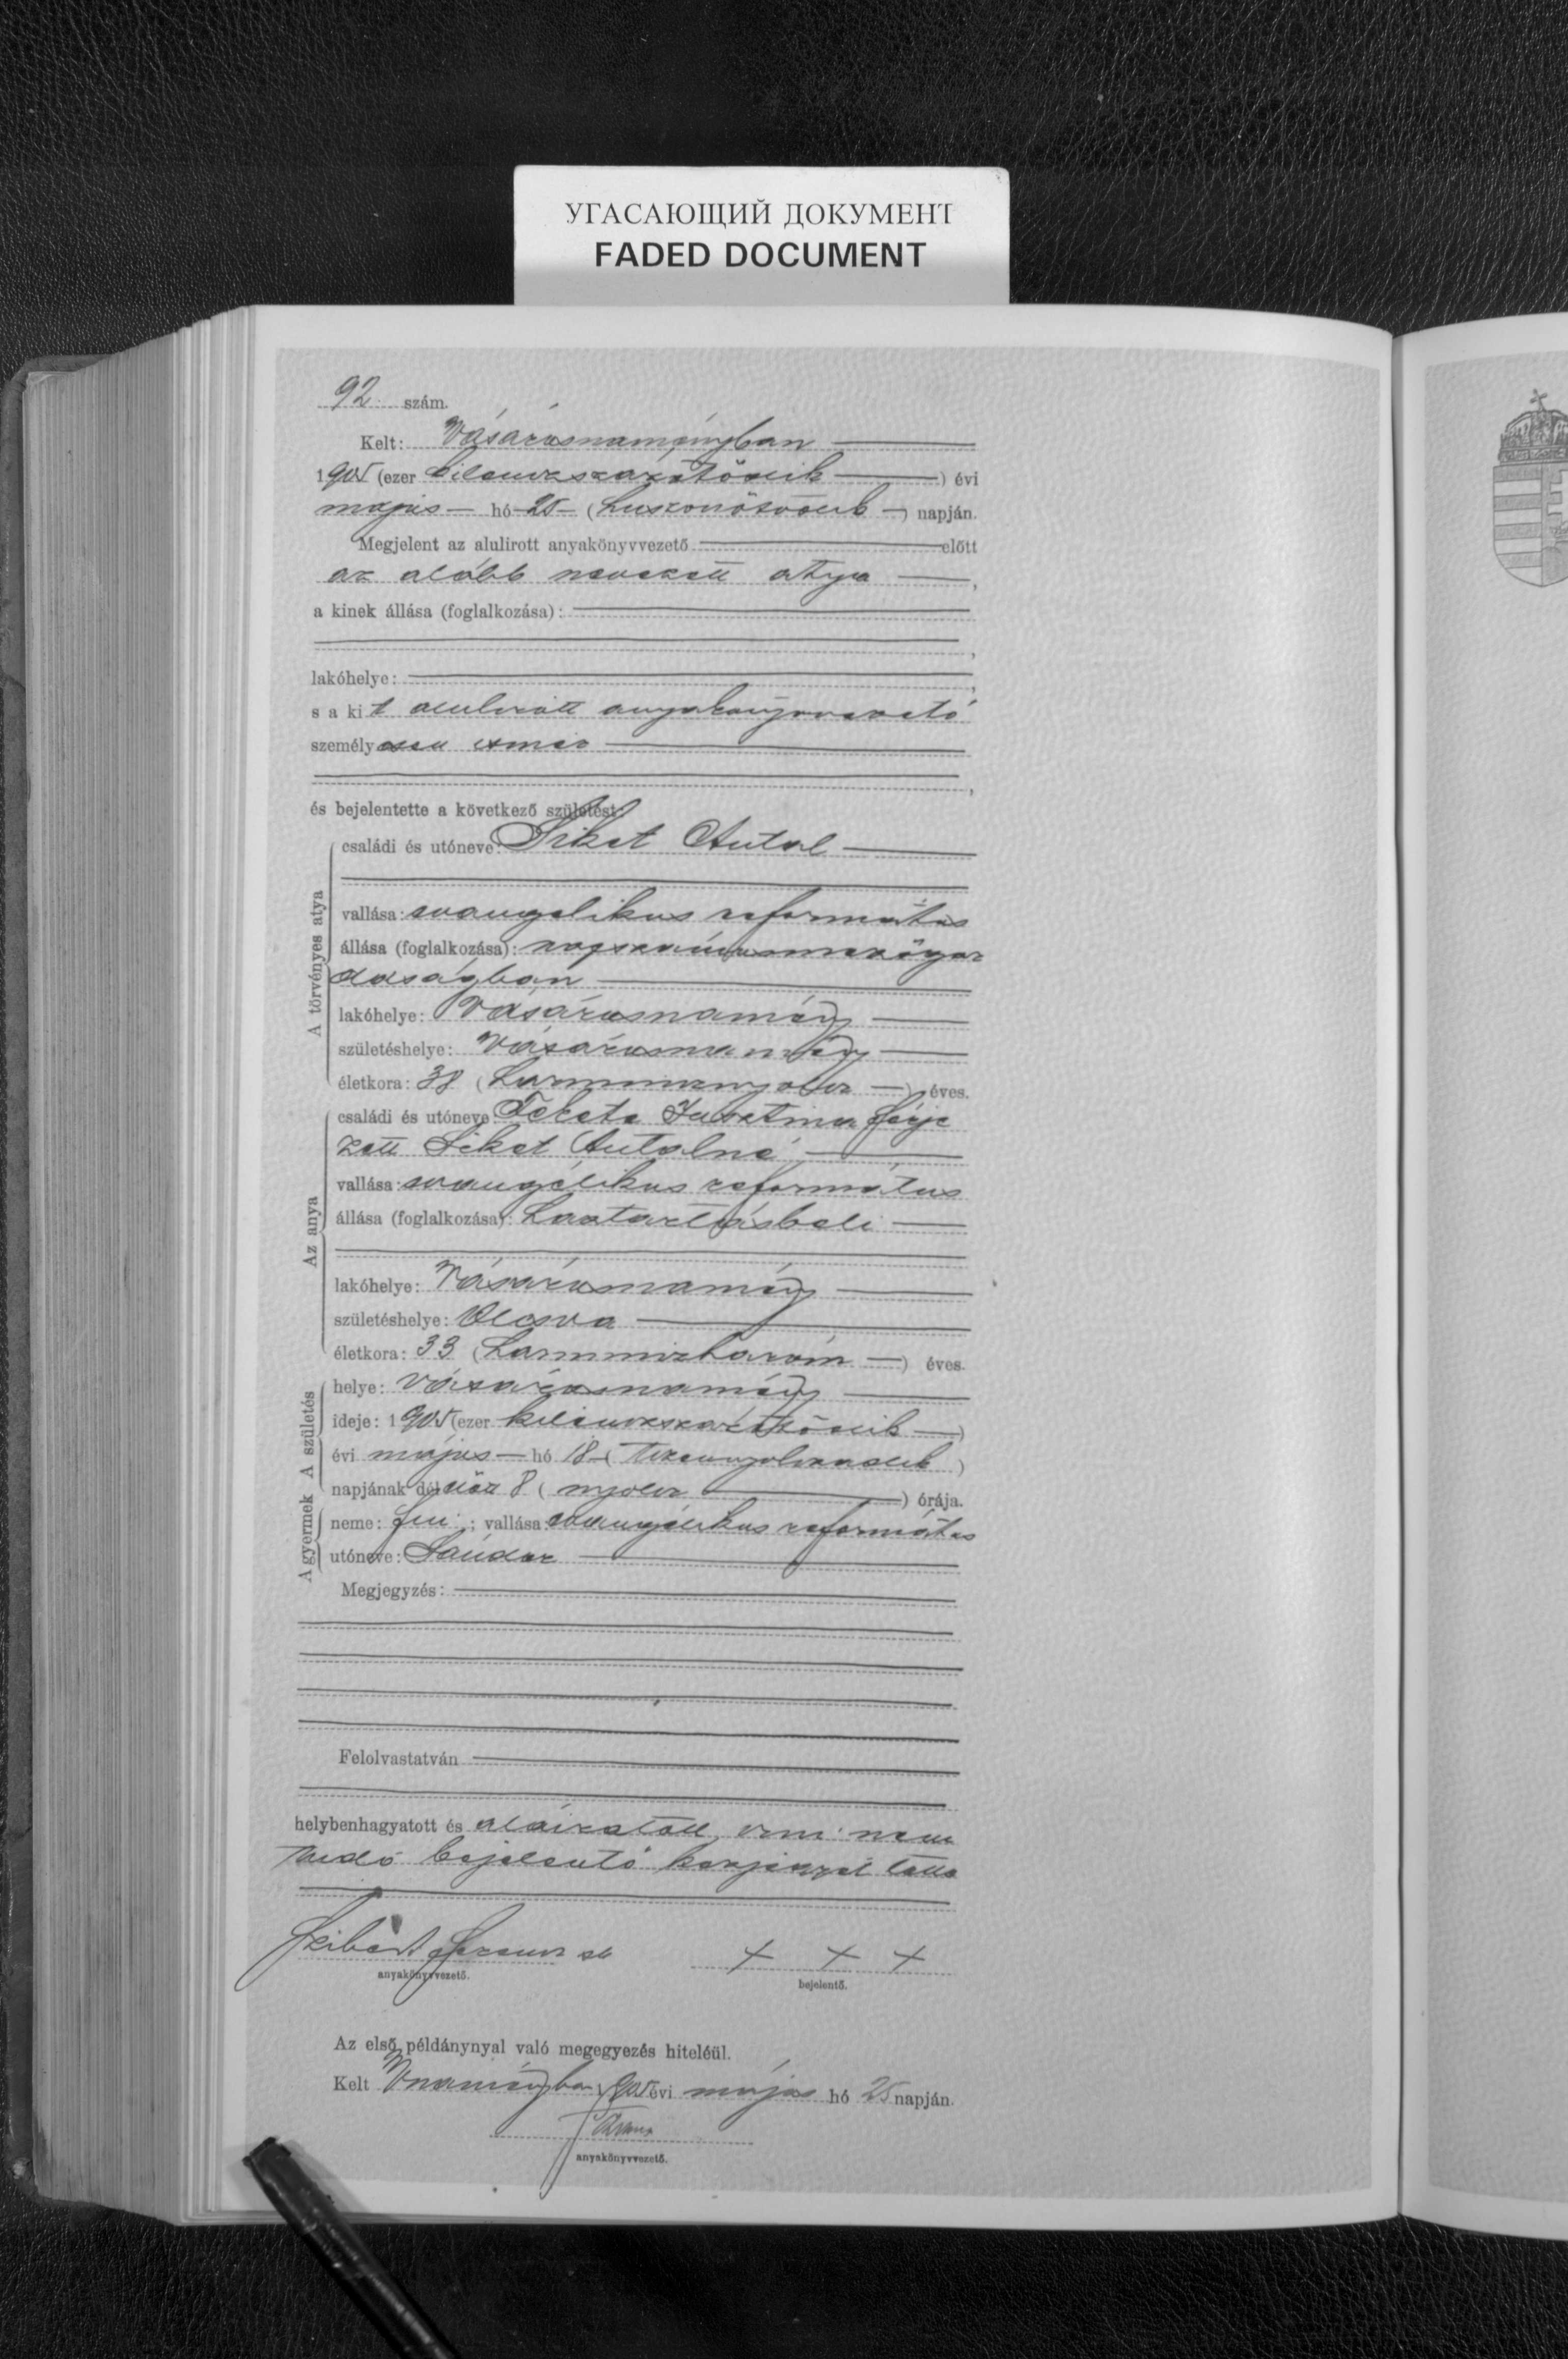 УГАСАЮЩИЙ ДОКУМЕНТ
FADED DOCUMENT
92 szám.
Kelt: Vásárosnaményban
1905 (ezer kilenczszázötödik) évi
május hó 25 (huszonötödik) napján.
Megjelent az alulirott anyakönyvvezető előtt
az alább nevezett atya,
a kinek állása (foglalkozása):
lakóhelye:
s a kit alulirott anyakönyvvezető
személyesen ismer
és bejelentette a következő születést:
A törvényes atya
családi és utóneve: Siket Antal
vallása: evangelikus református
állása (foglalkozása): napszámos mezőgaz
daságban
lakóhelye: Vásárosnamény
születéshelye: Vásárosnamény
életkora: 38 (harmincznyolcz) éves.
Az anya
családi és utóneve: Fekete férje
zett Siket Antalné
vallása: evangélikus református
állása (foglalkozása): háztartásbeli
lakóhelye: Vásárosnamény
születéshelye: Olcsva
életkora: 33 (harminczhárom) éves.
A születés
helye: Vásárosnamény
ideje: 1905 (ezer kilenczszázötödik)
évi május hó 18 (tizennyolczadik)
napjának délelőtt 8 (nyolcz) órája.
A gyermek
neme: fiu; vallása: evangélikus református
utóneve: Sándor
Megjegyzés:
Felolvastatván
helybenhagyatott és aláiratott, irni nem
tudó bejelentő kézjegyével látta
Ferencz
anyakönyvvezető.
+ + +
bejelentő.
Az első példánynyal való megegyezés hiteléül.
Kelt Vnaményban, 1905 évi május hó 25 napján.
anyakönyvvezető.